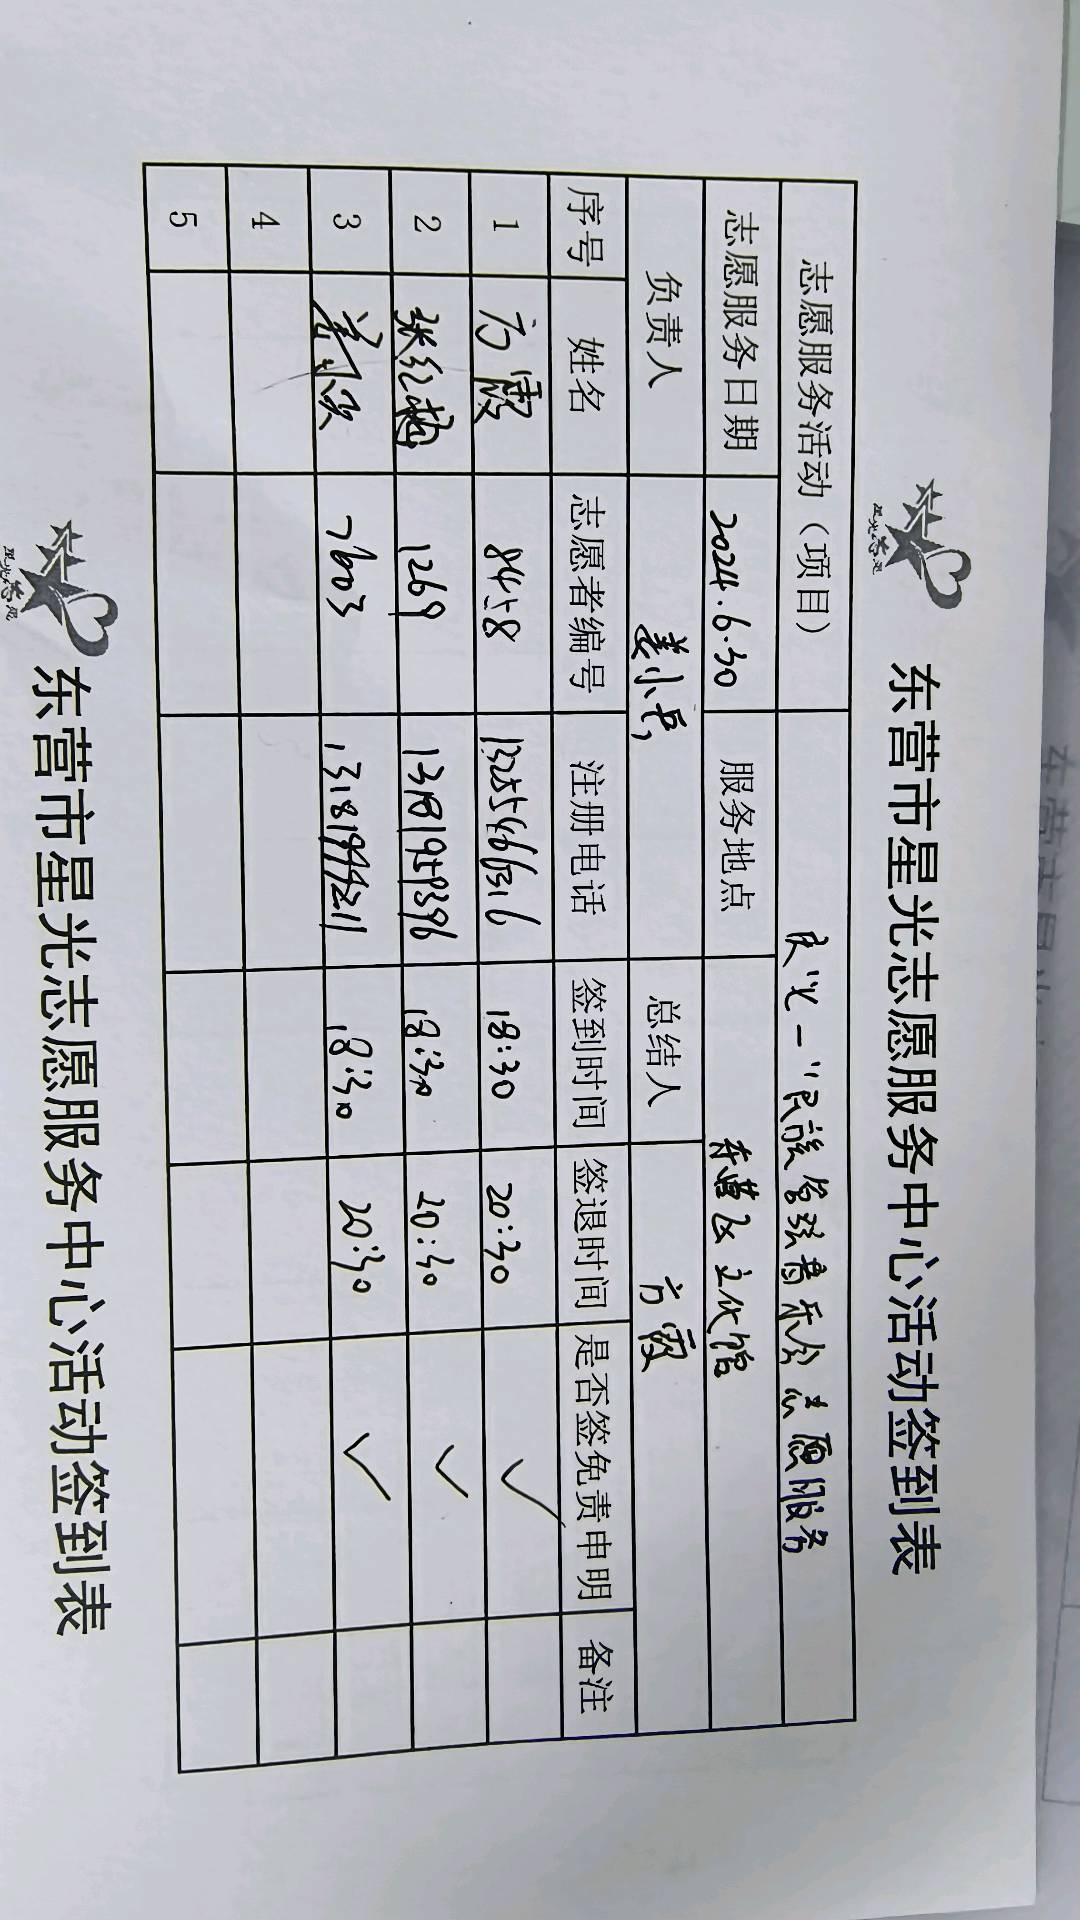 东营市星光志愿服务中心活动签到表
志愿服务活动（项目） 庆七一"民族管弦音乐会志愿服务
志愿服务日期 2024.6.30 服务地点 东营区文化馆
负责人 姜小兵 总结人 方霞
序号 姓名 志愿者编号 注册电话 签到时间 签退时间 是否签免责申明 备注
1 方霞 8458 13255466516 18:30 20:30 ✓
2 张红梅 1269 13181959396 18:30 20:30 ✓
3 7603 18:30 20:30 ✓
4
5
东营市星光志愿服务中心活动签到表